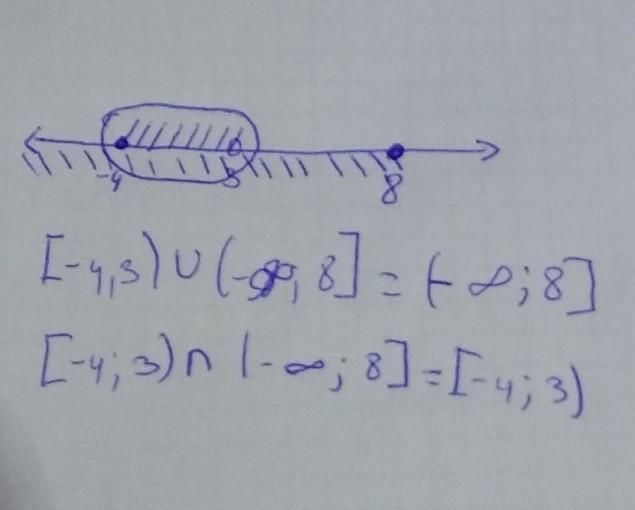 -4 3 8
[-4,3) ∪ (-∞, 8] = (-∞; 8]
[-4; 3) ∩ (-∞; 8] = [-4; 3)